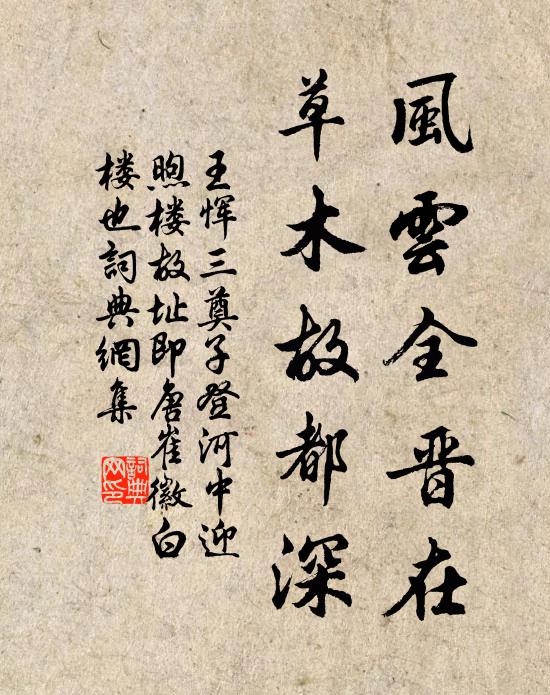 風雲全晋在
草木故都深
王恽三奠子登河中迎
煦楼故址即唐崔徽白
楼也詞典網集
詞典網印